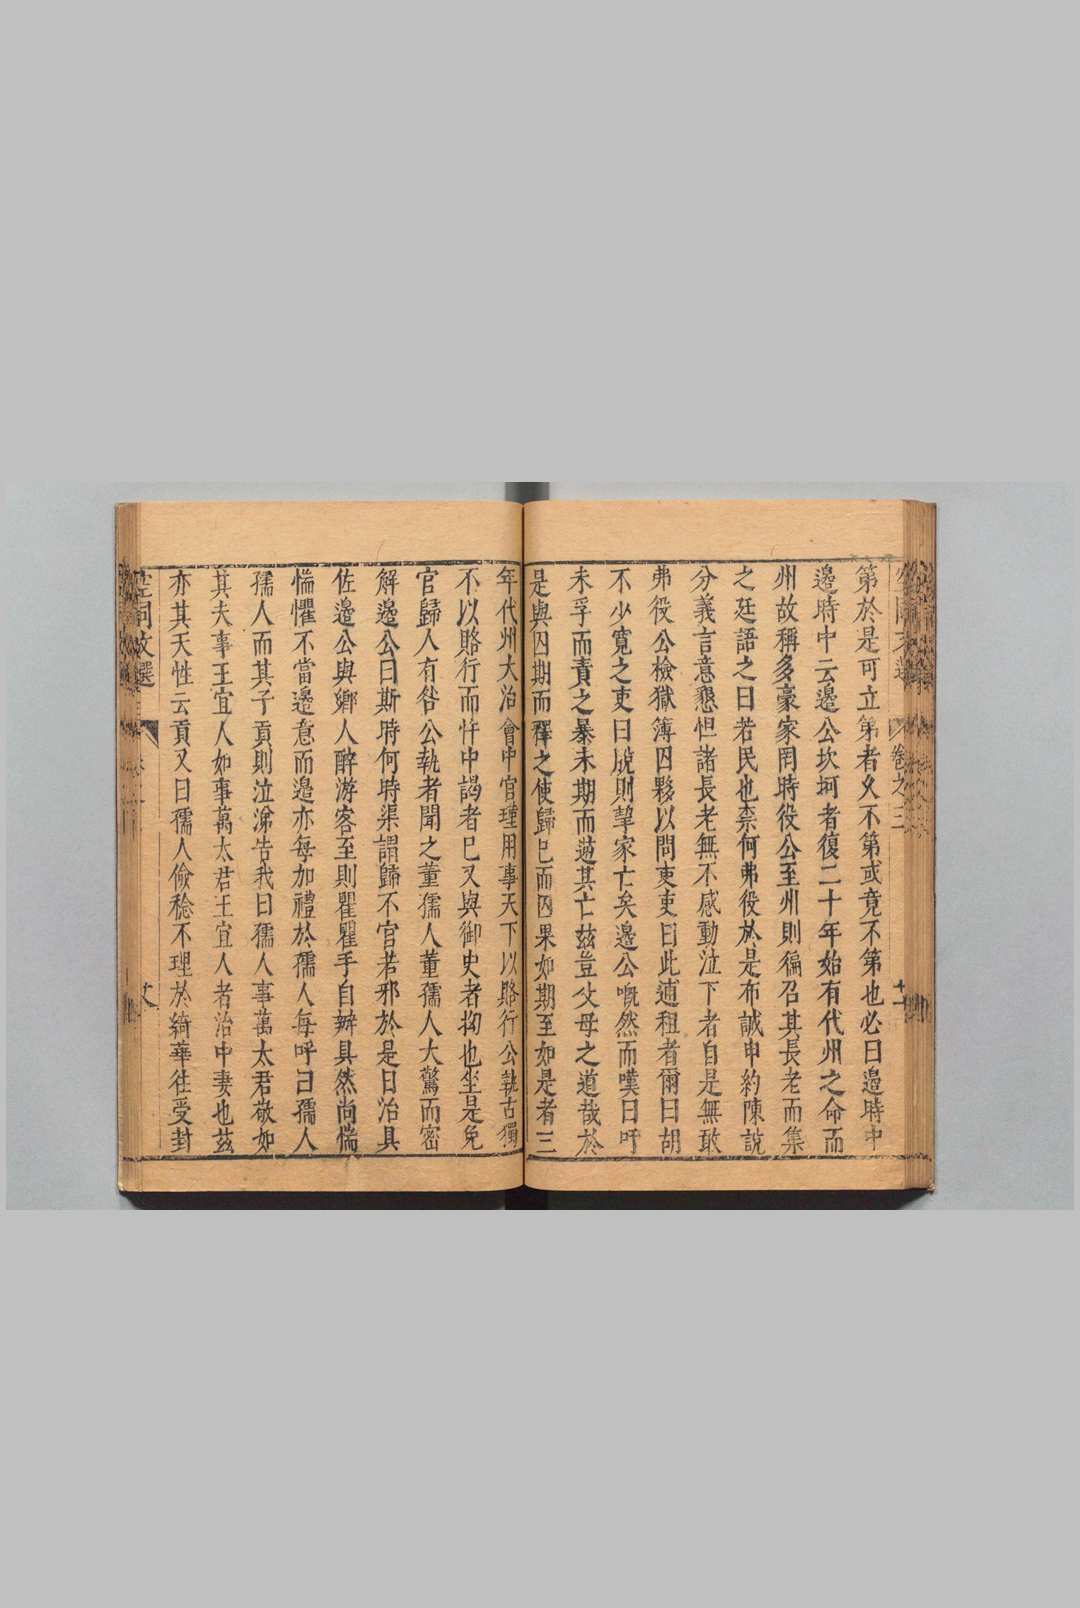 第於是可立第者久不第或竟不第也必曰邉時中
邉時中云邉公坎坷者復二十年始有代州之命而
州故稱多豪家罔時役公至州則徧召其長老而集
之廷語之曰若民也柰何弗役於是布誠申約陳說
分義言意懇怛諸長老無不感動泣下者自是無敢
弗役公檢獄簿囚夥以問吏吏曰此逋租者爾曰胡
不少寛之吏曰脱則挈家亡矣邉公嘅然而嘆曰吁
未孚而責之暴未期而逼其亡玆豈父母之道哉於
是與囚期而釋之使歸已而囚果如期至如是者三
年代州大治會中官瑾用事天下以賂行公執古獨
不以賂行而忤中謁者已又與御史者抝也坐是免
官歸人有咎公執者聞之董孺人董孺人大驚而密
解邉公曰斯時何時渠謂歸不官若邪於是日治具
佐邉公與鄉人醉游客至則瞿瞿手自辦具然尚惴
惴懼不當邉意而邉亦每加禮於孺人每呼曰孺人
孺人而其子貢則泣涕告我曰孺人事萬太君敬如
其夫事王宜人如事萬太君王宜人者治中妻也玆
亦其天性云貢又曰孺人儉稔不理於綺華往受封
空同文選
卷之三
空同文選